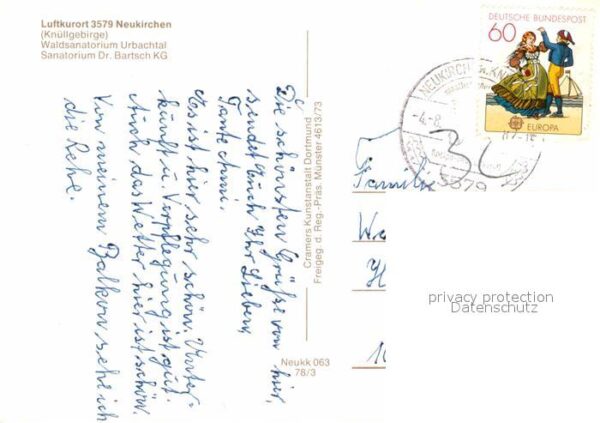 Luftkurort 3579 Neukirchen
(Knüllgebirge)
Waldsanatorium Urbachtal
Sanatorium Dr. Bartsch KG
Die schönsten Grüße von hier,
sendt Euch Ihr Lieben,
Tante
Es ist hier sehr schön. Unter-
kunft u. Verpflegung ist gut.
Auch das Wetter hier ist schön.
Von meinem Balkon sehe ich
die Rehe.
Cramers Kunstanstalt Dortmund
Freigeg. d. Reg.-Präs. Münster 4613/73
Neukk 063
78/3
DEUTSCHE BUNDESPOST
60
EUROPA
NEUKIRCHEN
-4.-8.
3579
Familie
privacy protection
Datenschutz